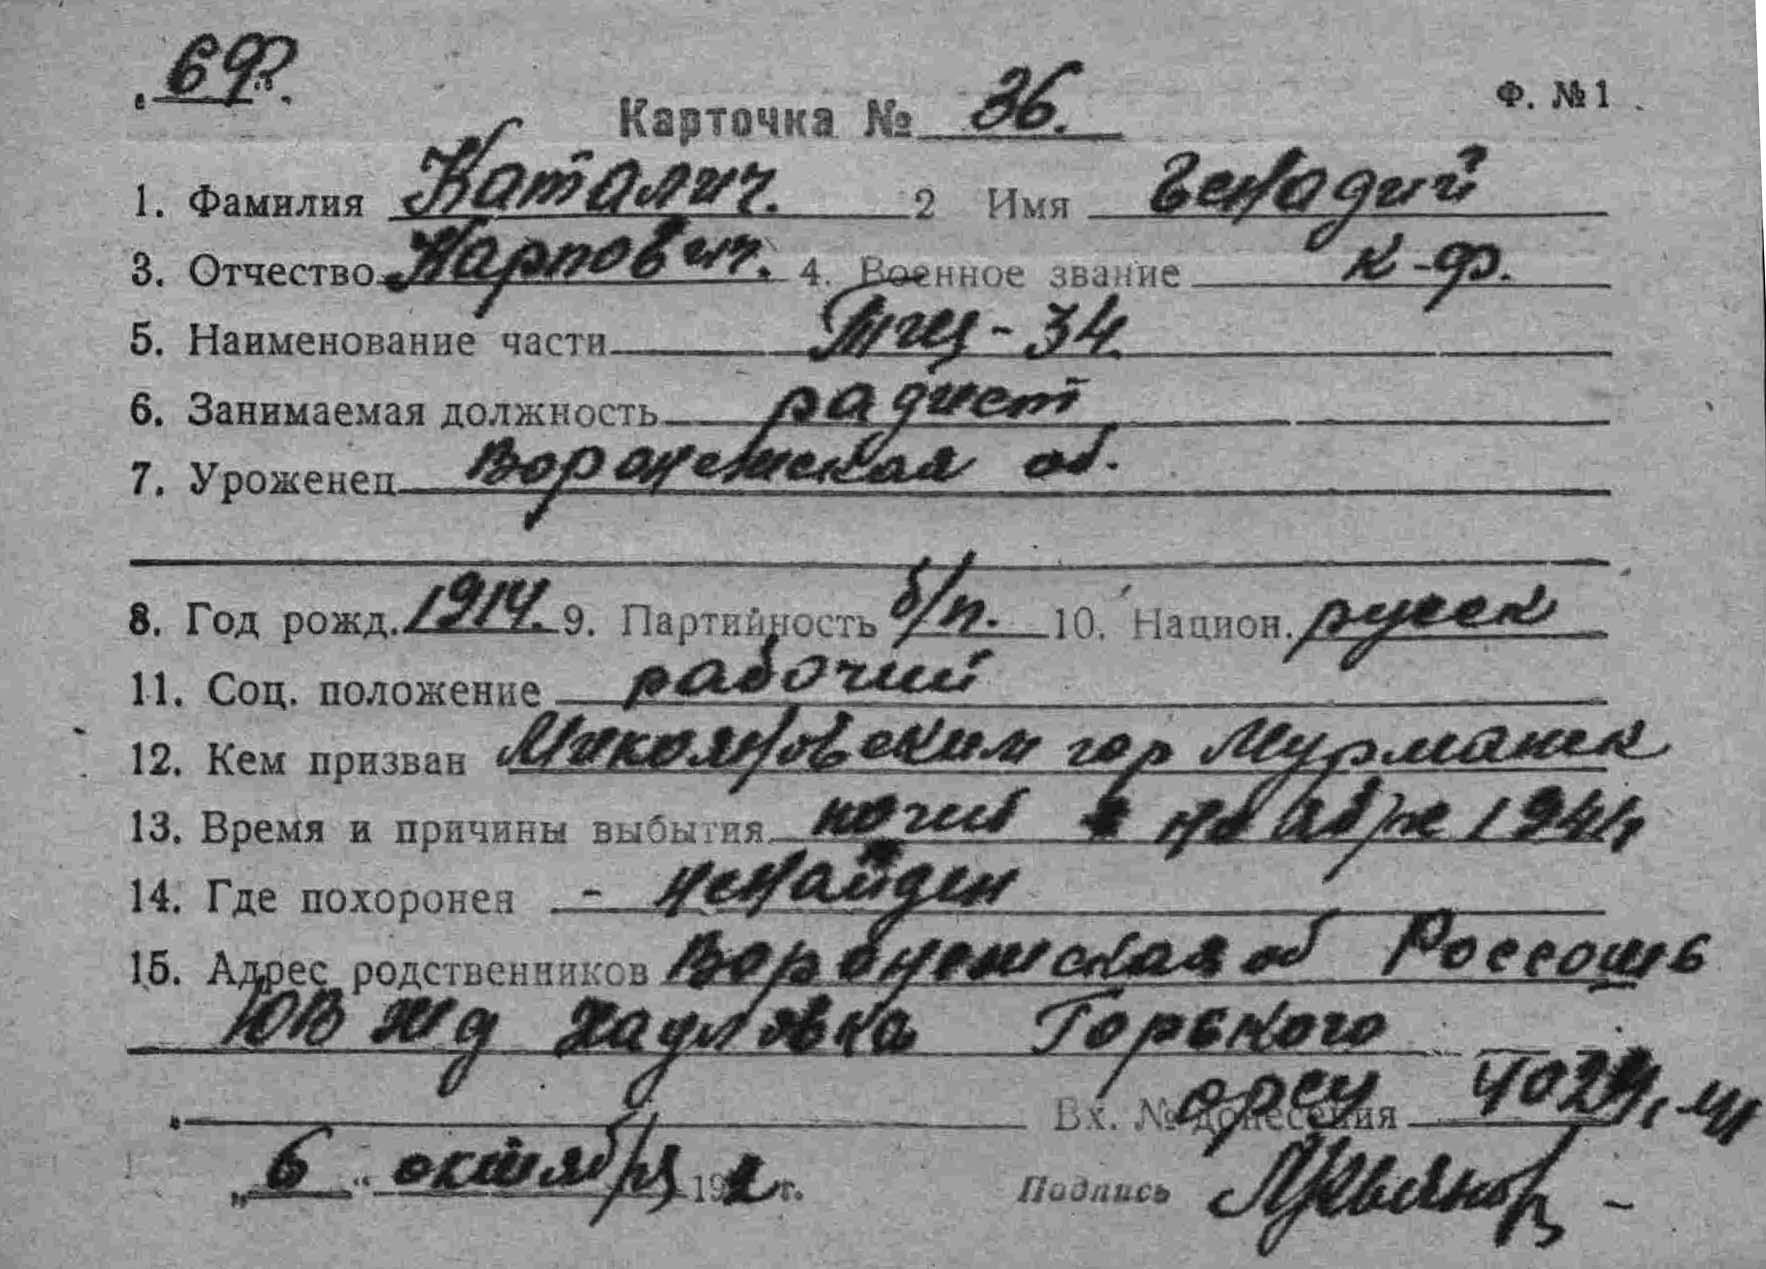 69
Карточка № 36. Ф. №1
1. Фамилия Каталич. 2 Имя Генадий
3. Отчество Карпович. 4. Военное звание к-ф.
5. Наименование части Тщ-34
6. Занимаемая должность радист
7. Уроженец Воронежская об.
8. Год рожд. 1914. 9. Партийность б/п. 10. Национ. русск
11. Соц. положение рабочий
12. Кем призван Микояновским гор Мурманск
13. Время и причины выбытия погиб ноябре 1941
14. Где похоронен - ненайден
15. Адрес родственников Воронежская об Россошь
ЮВ жд Горького
Вх. № донесения
„6" октября 19 г. Подпись